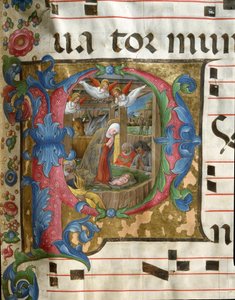 ua tor mun
n